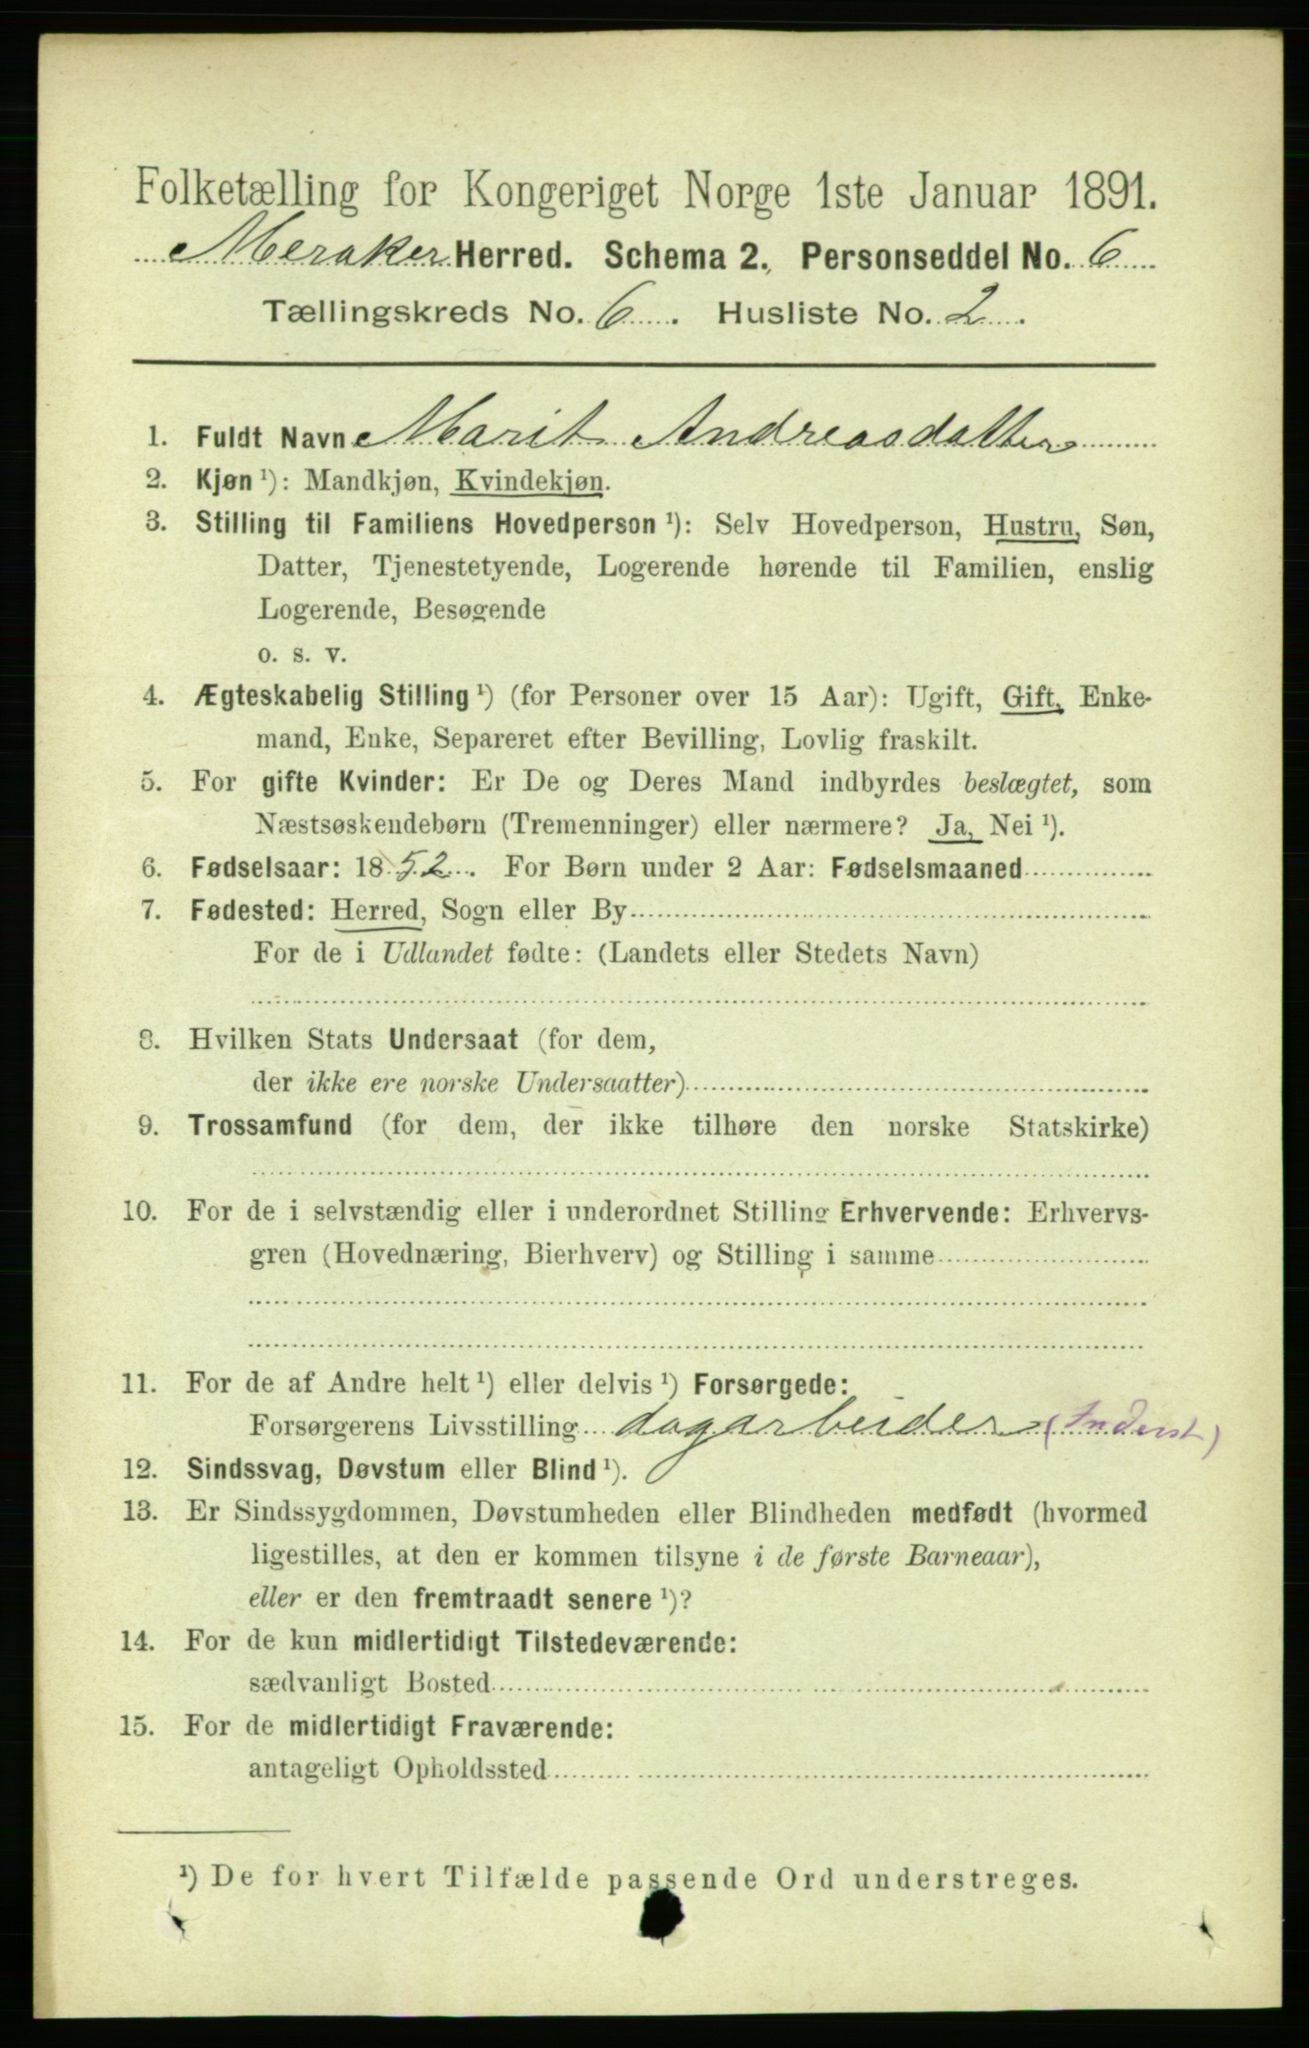 Folketælling for Kongeriget Norge 1ste Januar 1891.
Meraker Herred. Schema 2. Personseddel No. 6
Tællingskreds No. 6. Husliste No. 2.
1. Fuldt Navn Marit Andreasdatter
2. Kjøn ¹): Mandkjøn, Kvindekjøn.
3. Stilling til Familiens Hovedperson ¹): Selv Hovedperson, Hustru, Søn,
Datter, Tjenestetyende, Logerende hørende til Familien, enslig
Logerende, Besøgende
o. s. v.
4. Ægteskabelig Stilling ¹) (for Personer over 15 Aar): Ugift, Gift, Enke-
mand, Enke, Separeret efter Bevilling, Lovlig fraskilt.
5. For gifte Kvinder: Er De og Deres Mand indbyrdes beslægtet, som
Næstsøskendebørn (Tremenninger) eller nærmere? Ja, Nei ¹).
6. Fødselsaar: 1852. For Børn under 2 Aar: Fødselsmaaned
7. Fødested: Herred, Sogn eller By
For de i Udlandet fødte: (Landets eller Stedets Navn)
8. Hvilken Stats Undersaat (for dem,
der ikke ere norske Undersaatter)
9. Trossamfund (for dem, der ikke tilhøre den norske Statskirke)
10. For de i selvstændig eller i underordnet Stilling Erhvervende: Erhvervs-
gren (Hovednæring, Bierhverv) og Stilling i samme
11. For de af Andre helt ¹) eller delvis ¹) Forsørgede:
Forsørgerens Livsstilling dagarbeider (Inderst)
12. Sindssvag, Døvstum eller Blind ¹).
13. Er Sindssygdommen, Døvstumheden eller Blindheden medfødt (hvormed
ligestilles, at den er kommen tilsyne i de første Barneaar),
eller er den fremtraadt senere ¹)?
14. For de kun midlertidigt Tilstedeværende:
sædvanligt Bosted
15. For de midlertidigt Fraværende:
antageligt Opholdssted
¹) De for hvert Tilfælde passende Ord understreges.